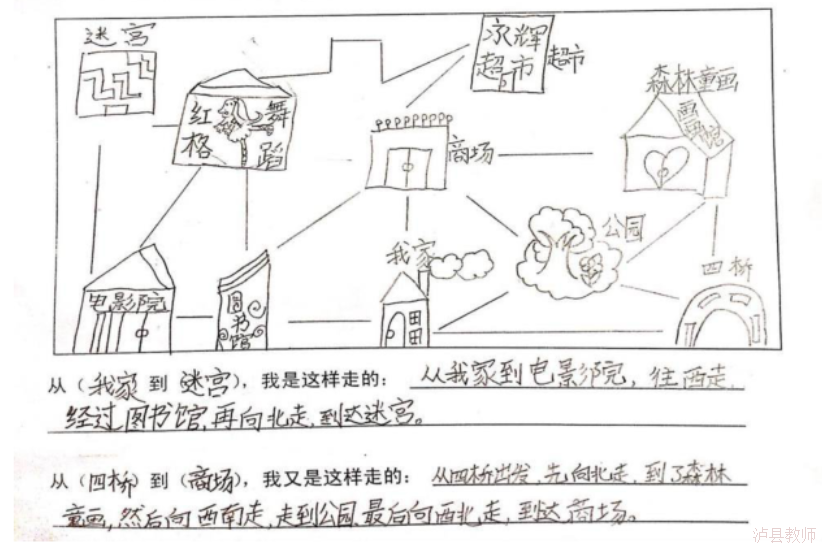 迷宫
永辉
超市
超市
森林童画
画
画
馆
红 舞
格 蹈
商场
公园
我家
四桥
电影院
图
书
馆
从（我家 到 迷宫），我是这样走的：从我家到电影院，往西走，
经过图书馆，再向北走，到达迷宫。
从（四桥）到（商场），我又是这样走的：从四桥出发，先向北走，到了森林
童画，然后向西南走，走到公园，最后向西北走，到达商场。
泸县教师